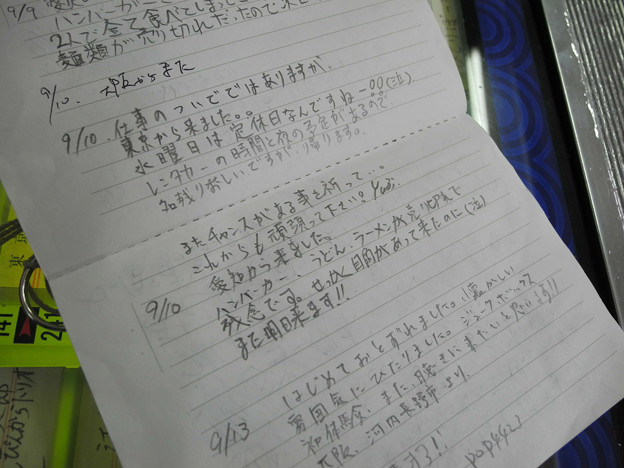 9/9
ハンバーガー
2人で全て食べてしまっ
麺類が売り切れだったので
9/10. 大阪からきた
9/10. 仕事のついでではありますが、
東京から来ました。。
水曜日は定休日なんですねー!!(泣)
レンタカーの時間と夜の予定があるので
名残り惜しいですが、帰ります。
またチャンスがある事を祈って…。
これからも頑張って下さい。
愛知から来ました。
9/10 ハンバーガー、うどん、ラーメンが売り切れで
残念です。せっかく目的があって来たのに(泣)
また明日来ます!!
9/13 はじめておとずれました。懐かしい
雰囲気にひたりました。ジュークボックス
初体験、また、聴きに来たいと思います!!
大阪、河内長野市より。
pop4423